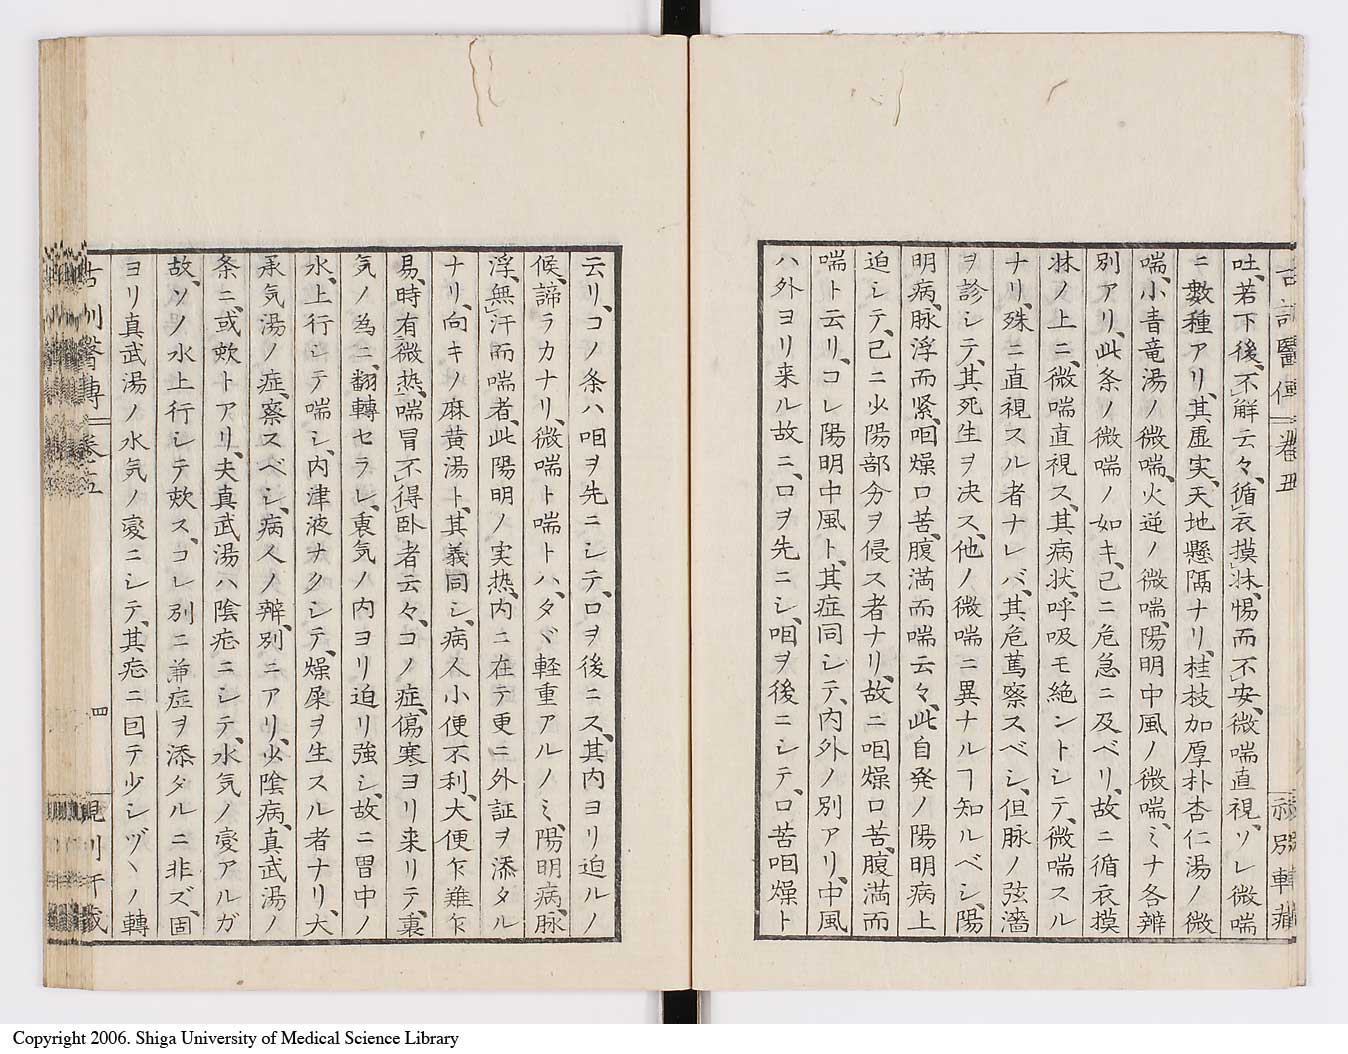 吐、若下後、不解云々、循衣摸牀、惕而不安、微喘直視、ソレ微喘
ニ數種アリ、其虚実、天地懸隔ナリ、桂枝加厚朴杏仁湯ノ微
喘、小青竜湯ノ微喘、火逆ノ微喘、陽明中風ノ微喘、ミナ各辨
別アリ、此条ノ微喘ノ如キ、已ニ危急ニ及ベリ、故ニ循衣摸
牀ノ上ニ、微喘直視ス、其病状、呼吸モ絶ントシテ、微喘スル
ナリ、殊ニ直視スル者ナレバ、其危篤察スベシ、但脉ノ弦濇
ヲ診シテ、其死生ヲ決ス、他ノ微喘ニ異ナルヿ知ルベシ、陽
明病、脉浮而紧、咽燥口苦、腹満而喘云々、此自発ノ陽明病上
迫シテ、已ニ少陽部分ヲ侵ス者ナリ、故ニ咽燥口苦、腹満而
喘ト云リ、コレ陽明中風ト、其症同シテ、内外ノ別アリ、中風
ハ外ヨリ来ル故ニ、口ヲ先ニシ、咽ヲ後ニシテ、口苦咽燥ト
云リ、コノ条ハ咽ヲ先ニシテ、口ヲ後ニス、其内ヨリ迫ルノ
候、諦ラカナリ、微喘ト喘トハ、タヾ軽重アルノミ、陽明病、脉
浮、無汗而喘者、此陽明ノ実热、内ニ在テ更ニ外証ヲ添タル
ナリ、向キノ麻黄湯ト、其義同シ、病人小便不利、大便乍難乍
易、時有微热、喘冒不得卧者云々、コノ症、傷寒ヨリ来リテ、裏
気ノ為ニ、翻轉セラレ、裏気ノ内ヨリ迫リ強シ、故ニ胃中ノ
水、上行シテ喘シ、内津液ナクシテ、燥屎ヲ生スル者ナリ、大
承気湯ノ症、察スベシ、病人ノ辨、別ニアリ、少陰病、真武湯ノ
条ニ、或欬トアリ、夫真武湯ハ陰疟ニシテ、水気ノ変アルガ
故、ソノ水上行シテ欬ス、コレ別ニ兼症ヲ添タルニ非ズ、固
ヨリ真武湯ノ水気ノ変ニシテ、其疟ニ囙テ少シヅヽノ轉
四